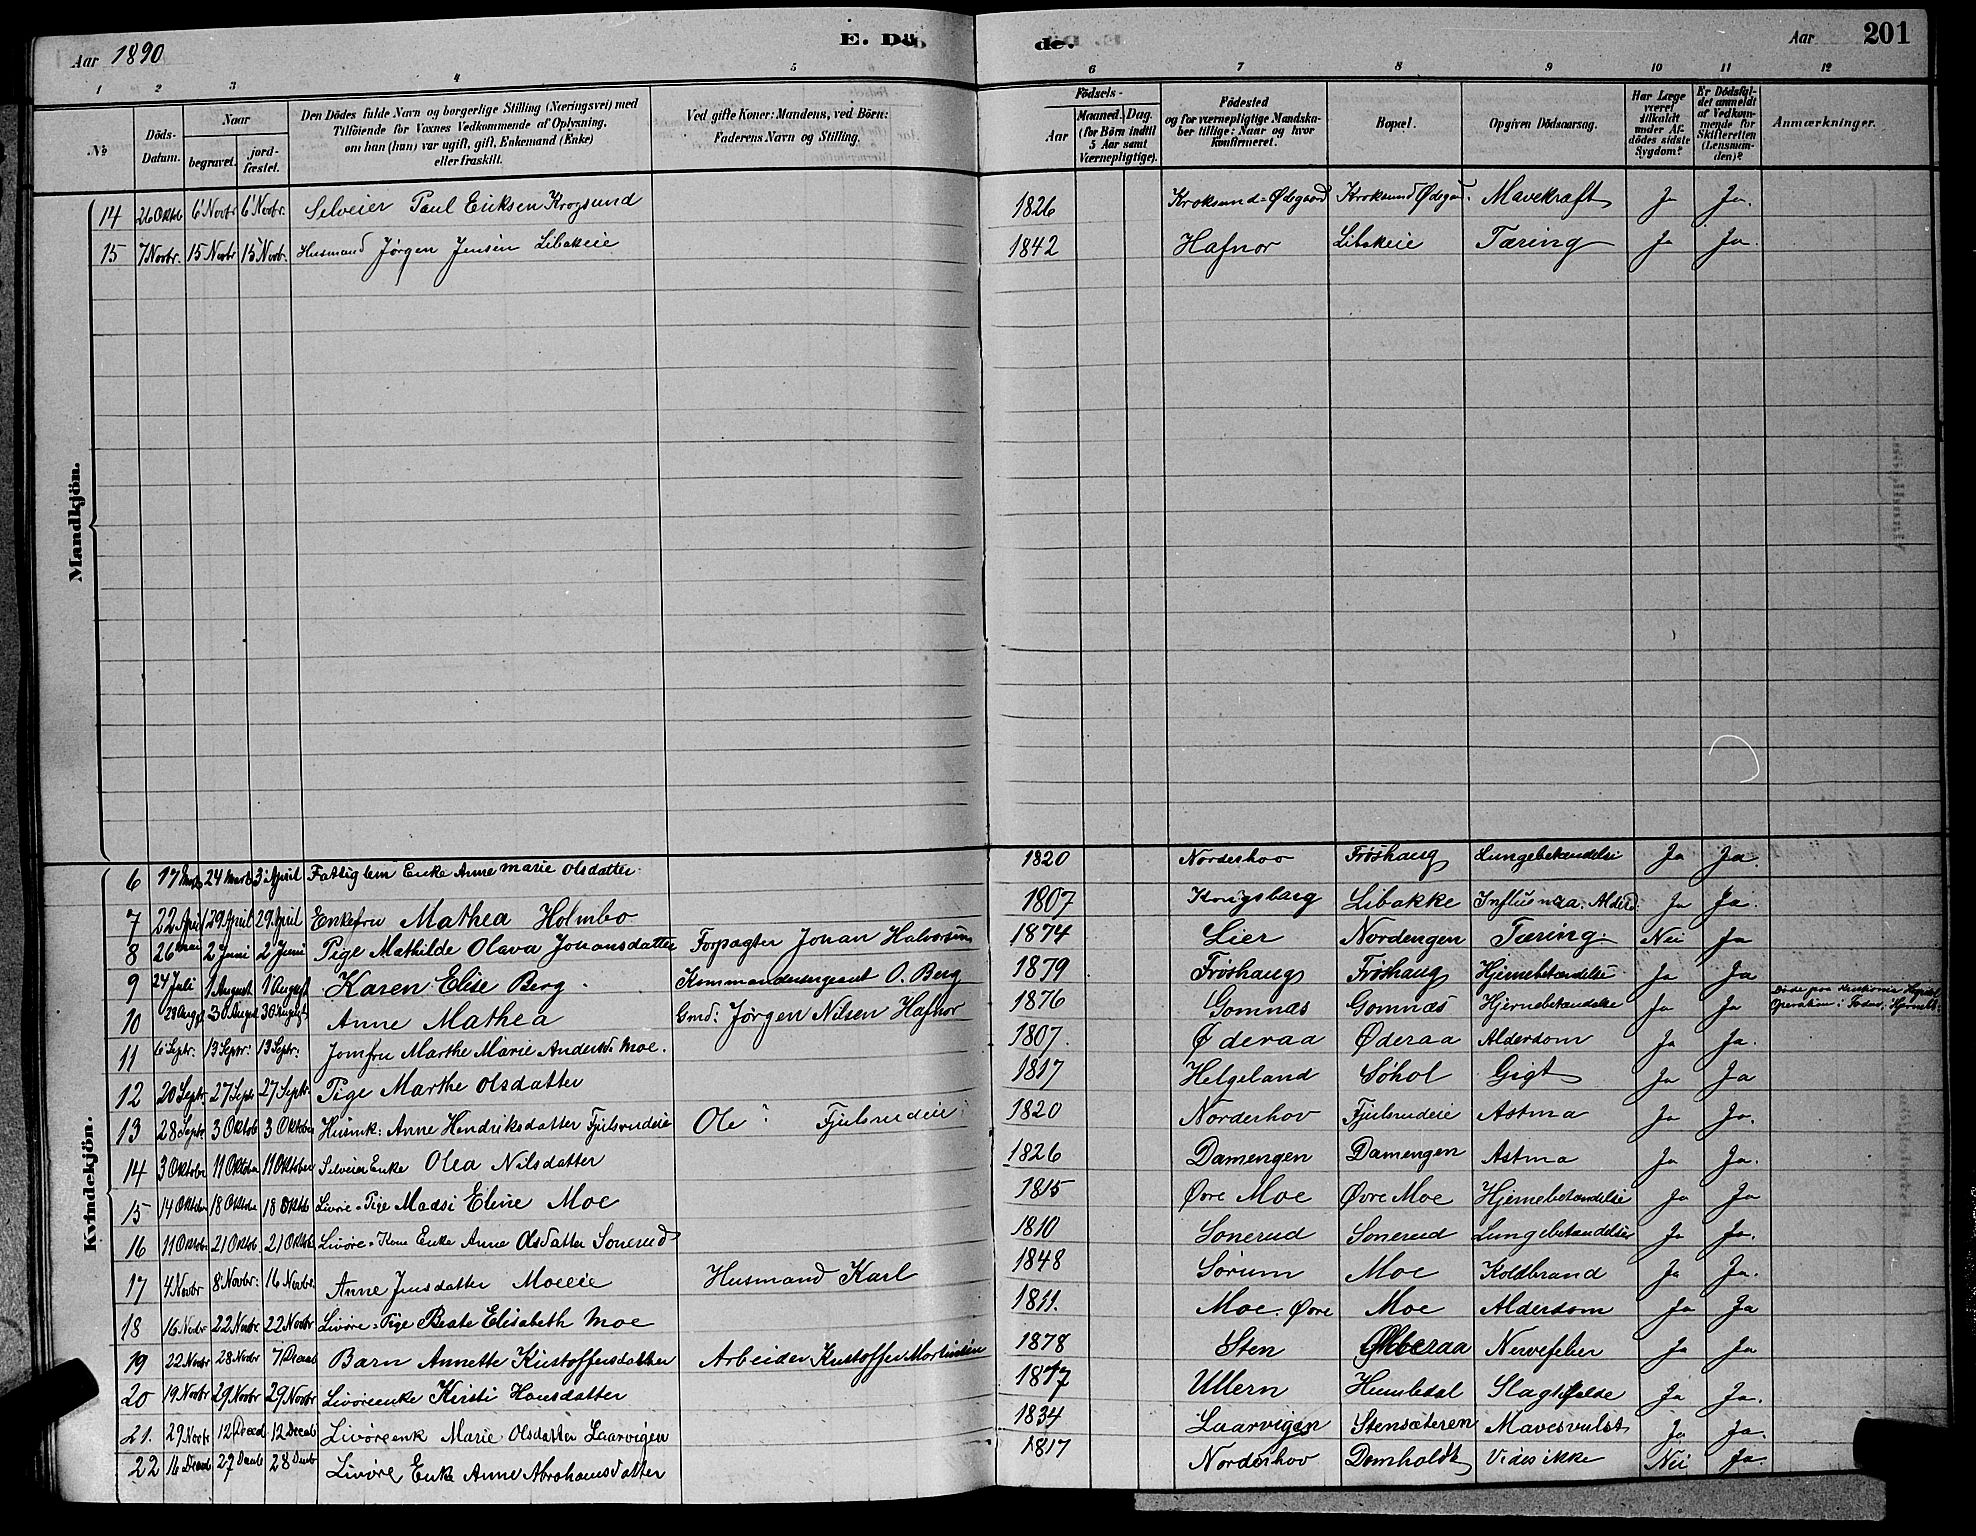 Aar 1890
E. Dö
de.
Aar 201
1 2 3 4 5 6 7 8 9 10 11 12
No
Döds-Datum.
Naar
begravet.
jord-fæstet.
Den Dödes fulde Navn og borgerlige Stilling (Næringsvei) med
Tilföiende for Voxnes Vedkommende af Oplysning,
om han (hun) var ugift, gift, Enkemand (Enke)
eller fraskilt.
Ved gifte Koner: Mandens, ved Börn:
Faderens Navn og Stilling.
Födsels-
Aar
Maaned. Dag.
(for Börn indtil
5 Aar samt
Værnepligtige).
Födested
og for værnepligtige Mandska-
ber tillige: Naar og hvor
konfirmeret.
Bopæl.
Opgiven Dödsaarsag.
Har Læge
været
tilkaldt
under Af-
dödes sidste
Sygdom?
Er Dödsfal-
det anmeldt
af Vedkom-
mende for
Skifteretten
(Lensman-
den)?
Anmærkninger.
Mandkjön.
14 26 Oktob 6 Novbr 6 Novbr. Selveier Paul Eriksen Krogsund 1826 Kroksund-Ødegaard Kroksund Ødega. Mavekræft Ja Ja.
15 7 Novbr. 15 Novbr 15 Novb. Husmand Jørgen Jensen Libakeie 1842 Hafnor Libakeie Tæring Ja Ja.
Kvindekjön.
6 17 Marts 24 Marts 3 April Fattiglem Enke Anne Marie Olsdatter 1820 Norderhov Frøshaug Lungebetændelse Ja Ja.
7 22 April 29 April 29 April Enkefru Mathea Holmbo 1807 Kongsbarg Libakke Influensa. Alderd Ja Ja.
8 26 Mai 2 Juni 2 Juni Pige Mathilde Olava Johansdatter Forpagter Johan Halvorsen 1874 Lier Nordengen Tæring. Nei Ja
9 24 Juli 1 August 1 August Karen Elise Berg. Kommandersergeant O. Berg 1879 Frøshaug Frøshaug Hjernebetændelse Ja Ja
10 28 Augst 30 August 30 August Anne Mathea Gmd: Jørgen Nilsen Hafnor 1876 Gomnæs Gomnæs Hjernebetændelse Ja Ja Døde paa Kristiania Hospital
11 6 Septr. 13 Septr: 13 Septr: Jomfru Marthe Marie Andersd. Moe. 1807. Øderaa Øderaa Alderdom Ja Ja.
12 20 Septr 27 Septr 27 Septr. Pige Marthe Olsdatter 1817 Helgeland Søhol Gigt Ja Ja
13 28 Septr 3 Oktob 3 Oktober Husmk: Anne Hendriksdatter Fjulsrudeie Ole Fjulsrudeie 1820 Norderhov Fjulsrudeie Astma Ja Ja.
14 3 Oktobr 11 Oktober 11 Oktober Selveier Enke Olea Nilsdatter 1826 Damengen Damengen Astma Ja Ja.
15 14 Oktober 18 Oktober 18 Oktb Livøre-Pige Madsi Eline Moe 1815 Øvre Moe Øvre Moe Hjernebetændelse Ja Ja
16 11 Oktobr 21 Oktob 21 Oktob. Livøre-Kone Enke Anne Olsdatter Sonerud 1810 Sonerud Sonerud Lungebetændelse Ja Ja.
17 4 Novbr 8 Novbr: 16 Novbr. Anne Jensdatter Moeeie Husmand Karl 1848 Sørum Moe Koldbrand Ja Ja.
18 16 Novbr 22 Novbr 22 Novbr Livøre-Pige Beate Elisabeth Moe 1811. Moe. Øvre Moe Alderdom Ja Ja
19 22 Novbr 28 Novbr 7 Decemb Barn Annette Kristoffersdatter Arbeider Kristoffer Martinsen 1878 Sten Nervefeber Ja Ja
20 19 Novbr 29 Novbr 29 Novbr Livøreenke Kirsti Hansdatter 1817 Ullern Humledal Slagtilfælde Ja Ja.
21. 29 Novbr 12 Decemb 12 Decemb Livøreenk Marie Olsdatter Laarvigen 1834 Laarvigen Stensæteren Mavesvulst Ja Ja.
22 16 Decemb 27 Decmb 28 Decmb Livøre Enke Anne Abrahamsdatter 1817 Norderhov Domholdt Vides ikke Nei Ja.